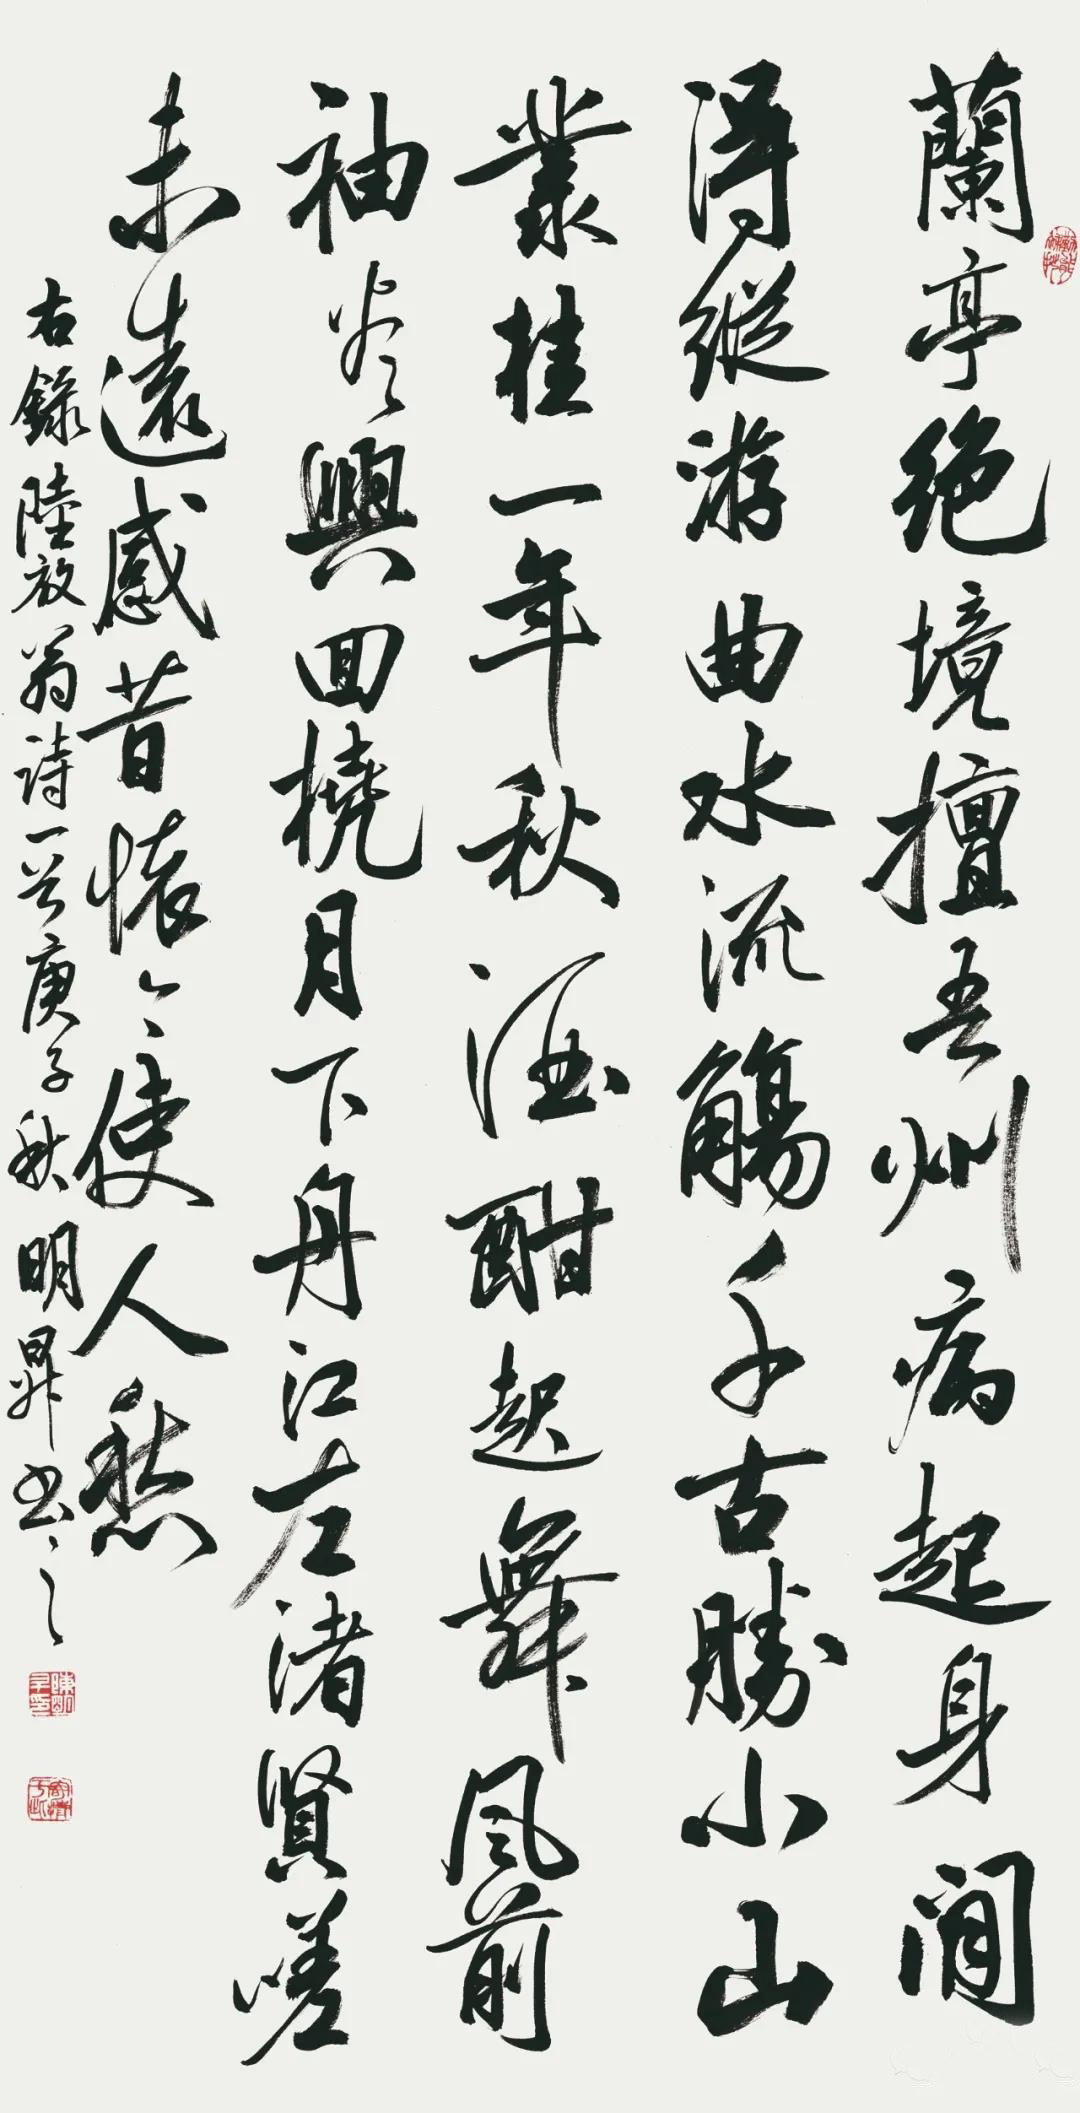 蘭亭絕境擅吾州病起身間
得縱游曲水流觴千古勝小山
叢桂一年秋酒酣起舞風前
袖尽興回橈月下舟江左渚賢嗟
未遠感昔懷今使人愁
右錄陸放翁詩一首庚子秋明昇書之